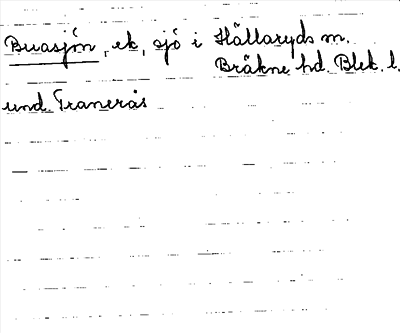 Buasjön, ek, sjö i Hällaryds sn.
Bräkne hd. Blek. l.
und. Tranerås